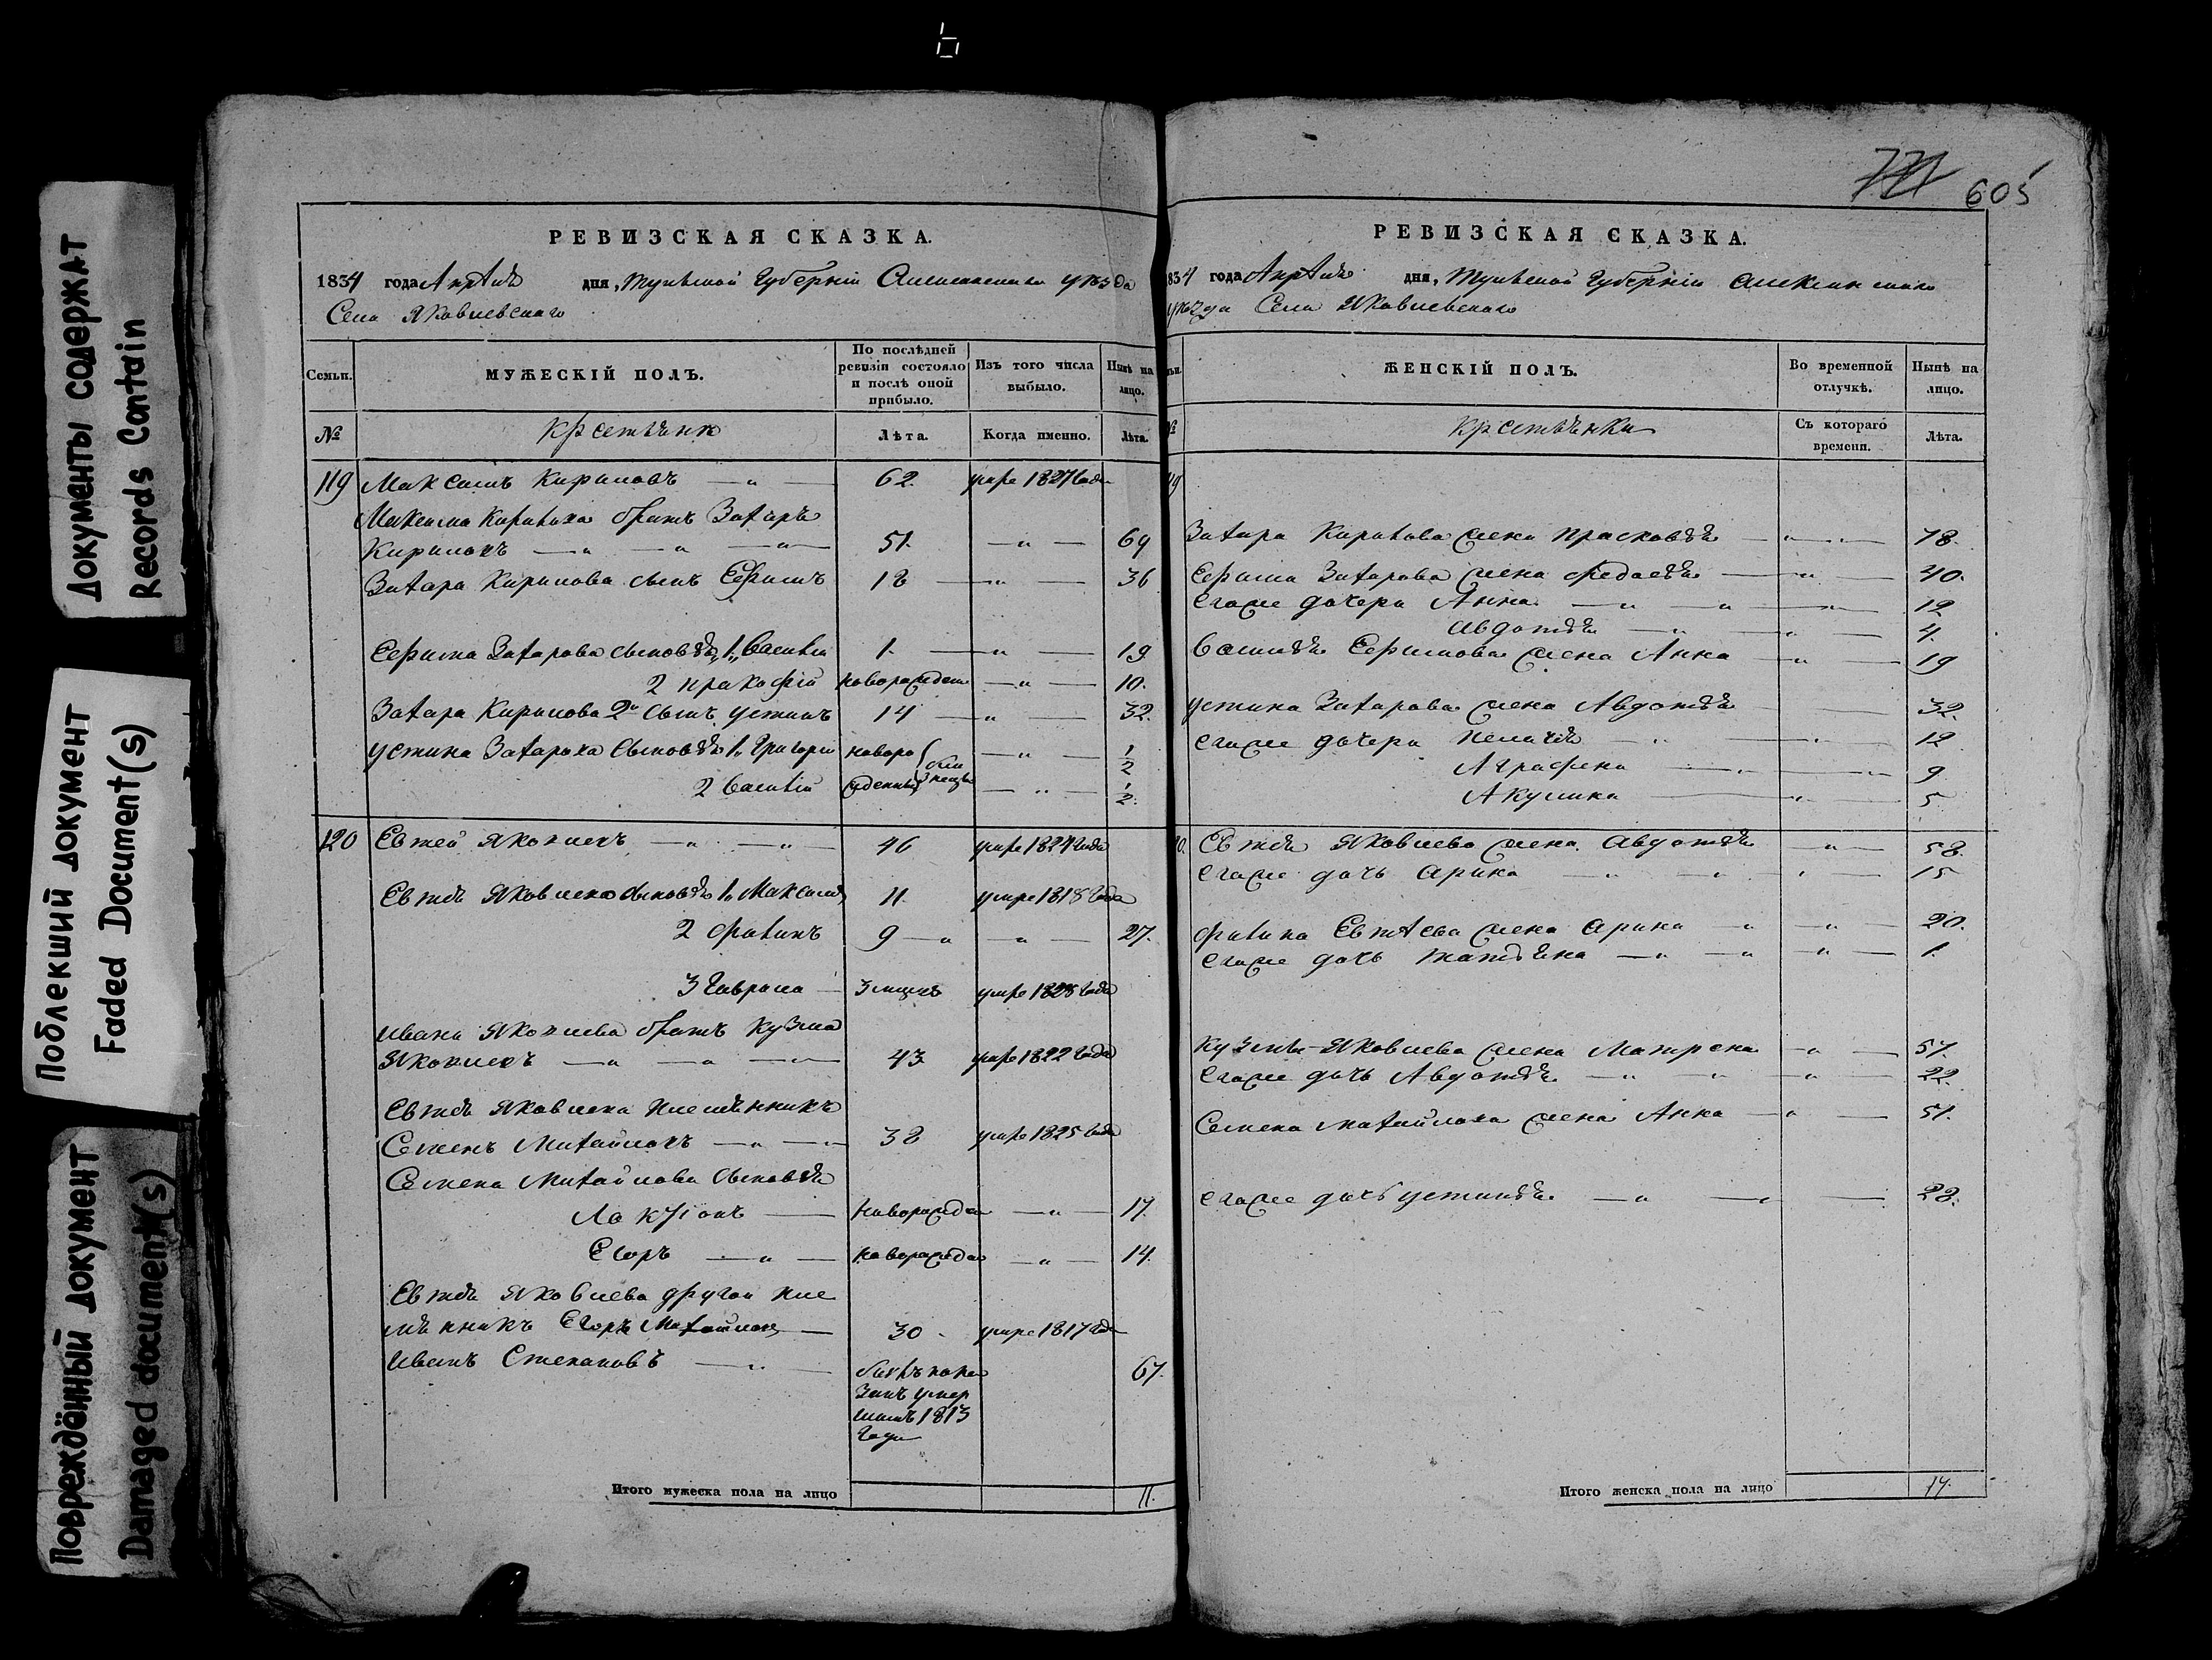 Документы содержат
Records Contain
Поблекший документ
Faded Document(s)
Повреждённый документ
Damaged document(s)
РЕВИЗСКАЯ СКАЗКА.
1834 года Апреля дня, Тульской Губернiи Алексинскаго уѣзда
Села Яковлевскаго
Семьи.
МУЖЕСКІЙ ПОЛЪ.
По послѣдней
ревизіи состояло
и послѣ оной
прибыло.
Изъ того числа
выбыло.
Нынѣ на
лицо.
№
Крестьяне
Лѣта.
Когда именно.
Лѣта.
119 Максимъ Кириловъ 62. умре 1827 Года
Максима Кирилова братъ Захаръ
Кириловъ 51. 69
Захара Кирилова сынъ Ефимъ 18 36
Ефима Захарова сыновья 1. Василiй 1. 19
2 Прокофiй новорожден 10.
Захара Кирилова 2й сынъ Устинъ 14 32.
Устина Захарова сыновья 1. Григорiй новоро 1/2
2 Василiй жденные 1/2.
120 Евтей Яковлевъ 46 умре 1824 Года
Евтея Яковлева сыновья 1. Максимъ 11. умре 1818 Года
2 Филипъ 9 27.
3 Гаврила умре 1828 Года
Ивана Яковлева братъ Кузма
Яковлевъ 43 умре 1822 Года
Евтея Яковлева племянникъ
Семенъ Михайловъ 38 умре 1825 Года
Семена Михайлова сыновья
новорожден 17.
Егоръ новорожден 14.
Евтея Яковлева другой пле
мянникъ Егоръ Михайловъ 30 умре 1817 Года
Иванъ Степановъ былъ пока 67.
занъ умер
шимъ 1813
Года
Итого мужеска пола на лицо 11.
771 605
РЕВИЗСКАЯ СКАЗКА.
1834 года Апреля дня, Тульской Губернiи Алексинскаго
уѣзда Села Яковлевскаго
ЖЕНСКІЙ ПОЛЪ.
Во временной
отлучкѣ.
Нынѣ на
лицо.
№
Крестьянки
Съ котораго
времени.
Лѣта.
Захара Кирилова жена Прасковья 78.
Ефима Захарова жена Федосья 40.
Егоже дочери Анна 12
Авдотья 4.
Василья Ефимова жена Анна 19
Устина Захарова жена Авдотья 32.
Егоже дочери Пелагѣя 12
Аграфена 9
Акулина 5
Евтея Яковлева жена Авдотья 58.
Егоже дочь Арина 15
Филипа Евтѣева жена Арина 20.
Егоже дочь Татьяна 1.
Кузмы Яковлева жена Матрена 57.
Егоже дочь Авдотья 22.
Семена Михайлова жена Анна 51.
Егоже дочь Устинья 28.
Итого женска пола на лицо 17.